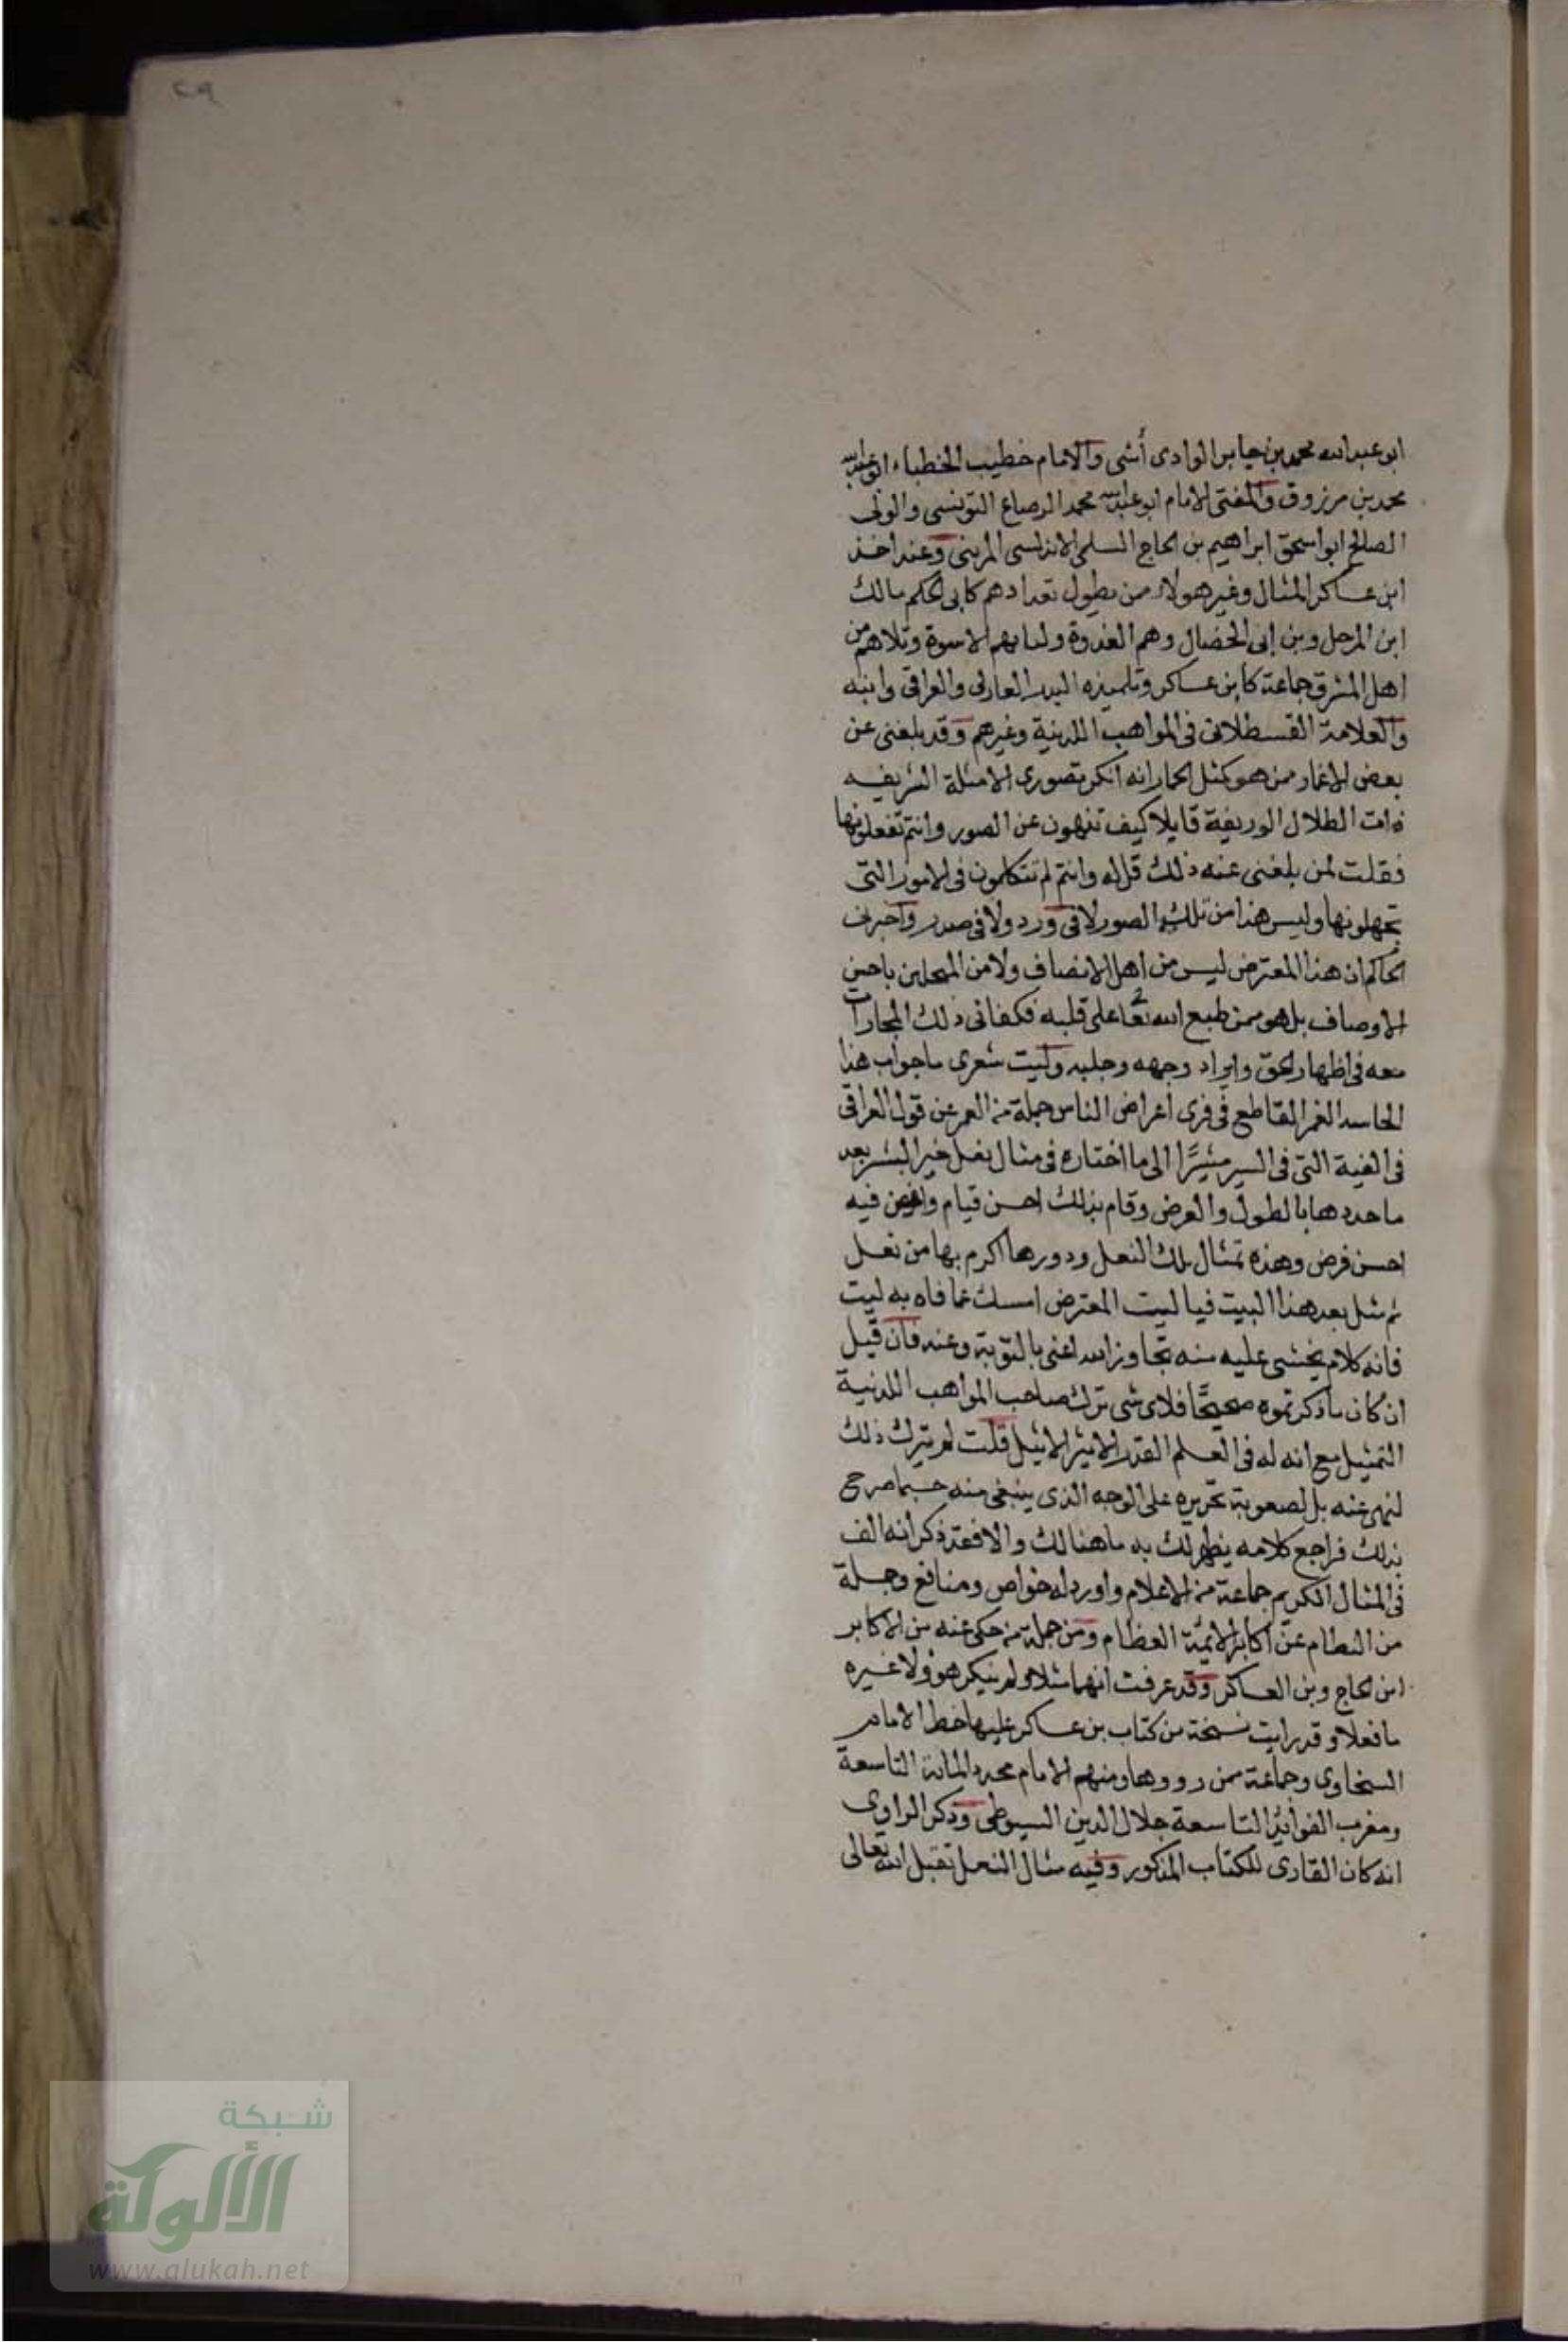 ٢٩
ابو عبد الله محمد بن جابر الوادى أشى والامام خطيب الخطباء ابو عبد الله
محمد بن مرزوق والمفتى الامام ابو عبد الله محمد الرصاع التونسى والولى
الصالح ابو اسحق ابراهيم بن الحاج السلمى الاندلسى المرينى وعنه اخذ
ابن عساكر المثال وغير هولاء ممن يطول تعدادهم كابى الحكم مالك
ابن المرحل وبن ابى الخصال وهم القدوة ولنا بهم الاسوة وتلاهم من
اهل المشرق جماعة كابن عساكر وتلميذه البدر الفارقى والعراقى وابنه
والعلامة القسطلانى فى المواهب اللدنية وغيرهم وقد بلغنى عن
بعض الاغمار ممن هو كمثل الحمار انه انكر تصويرى الامثلة الشريفه
ذات الظلال الوريفة قايلا كيف تنهون عن الصور وانتم تفعلونها
فقلت لمن بلغنى عنه ذلك قل له وانتم لم تتكلمون فى الامور التى
تجهلونها وليس هذا من تلك الصور لا فى ورد ولا فى صدر واخبرنى
الحاكى ان هذا المعترض ليس من اهل الانصاف ولا من المحلين باحسن
الاوصاف بل هو ممن طبع الله تعا على قلبه فكفانى ذلك المجارات
معه فى اظهار الحق وايراد وجهه وجلبه وليت شعرى ما جواب هذا
الحاسد الغمر القاطع فى فرى أعراض الناس جملة من العمر عن قول العراقى
فى الفية التى فى السير مشيرًا الى ما اختاره فى مثال نعل خير البشر بعد
ما حددها بالطول والعرض وقام بذلك احسن قيام وافرض فيه
احسن فرض وهذه تمثال تلك النعل ودورها اكرم بها من نعل
ثم مثل بعد هذا البيت فيا ليت المعترض امسك عما فاه به ليت
فانه كلام يخشى عليه منه تجاوز الله عنى بالتوبة وعنه فان قيل
ان كان ما ذكرتموه صحيحًا فلاى شى ترك صاحب المواهب اللدنية
التمثيل مع انه له فى العلم القدر الاثير الاثيل قلت لم يترك ذلك
لنهى عنه بل لصعوبة تحريره على الوجه الذى ينبغى منه حسبما صرح
بذلك فراجع كلامه يظهر لك به ما هنالك والا فقد ذكر انه الف
فى المثال الكريم جماعة من الاعلام واورد له خواص ومنافع وجملة
من النظام عن أكابر الائمة العظام ومن جملة من حكى عنه من الاكابر
ابن الحاج وبن العساكر وقد عرفت انهما مثلاه ولم ينكر هو ولا غيره
ما فعلا وقد رايت نسخة من كتاب بن عساكر عليها خط الامام
السخاوى وجماعة ممن رووها ومنهم الامام مجدد المائة التاسعة
ومقرب الفوائد الشاسعة جلال الدين السيوطى وذكر الراوى
انه كان القارى للكتاب المذكور وفيه مثال النعل تقبل الله تعالى
شبكة
الألوكة
www.alukah.net